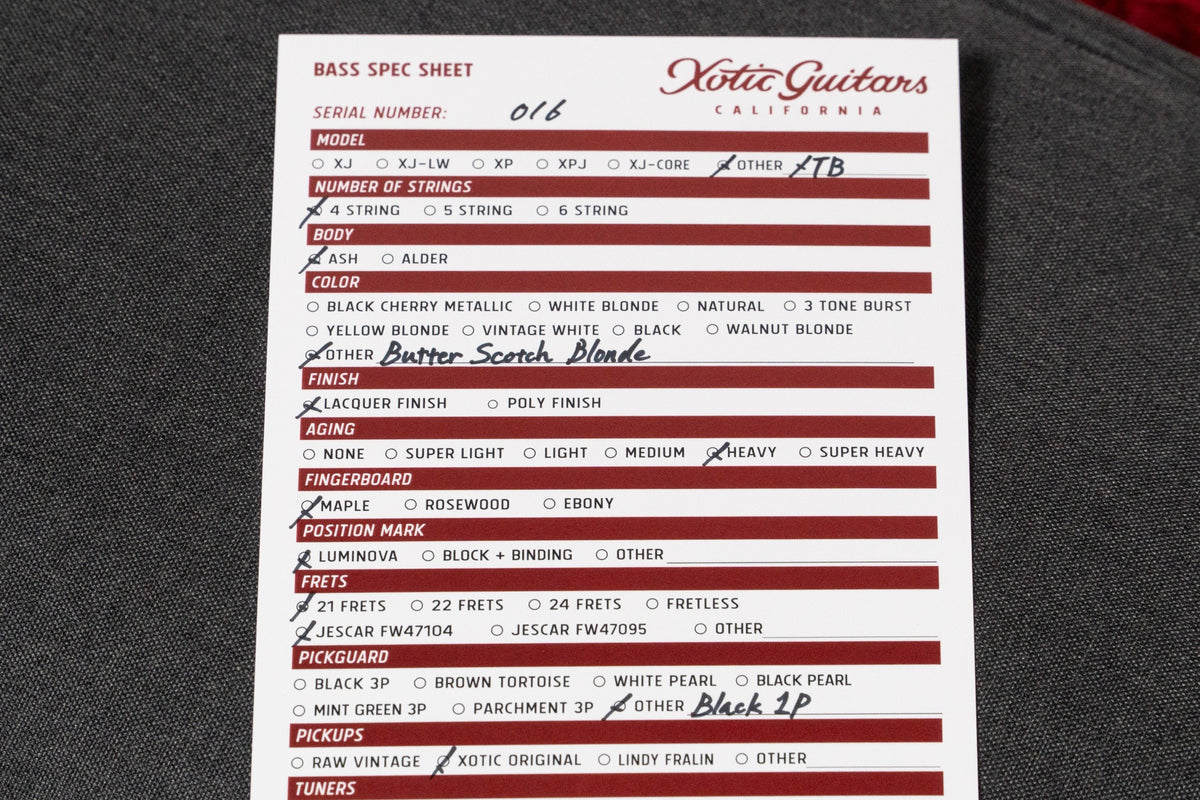 BASS SPEC SHEET
Xotic Guitars
CALIFORNIA
SERIAL NUMBER: 016
MODEL
XJ XJ-LW XP XPJ XJ-CORE OTHER XTB
NUMBER OF STRINGS
4 STRING 5 STRING 6 STRING
BODY
ASH ALDER
COLOR
BLACK CHERRY METALLIC WHITE BLONDE NATURAL 3 TONE BURST
YELLOW BLONDE VINTAGE WHITE BLACK WALNUT BLONDE
OTHER Butter Scotch Blonde
FINISH
LACQUER FINISH POLY FINISH
AGING
NONE SUPER LIGHT LIGHT MEDIUM HEAVY SUPER HEAVY
FINGERBOARD
MAPLE ROSEWOOD EBONY
POSITION MARK
LUMINOVA BLOCK + BINDING OTHER
FRETS
21 FRETS 22 FRETS 24 FRETS FRETLESS
JESCAR FW47104 JESCAR FW47095 OTHER
PICKGUARD
BLACK 3P BROWN TORTOISE WHITE PEARL BLACK PEARL
MINT GREEN 3P PARCHMENT 3P OTHER Black 1P
PICKUPS
RAW VINTAGE XOTIC ORIGINAL LINDY FRALIN OTHER
TUNERS